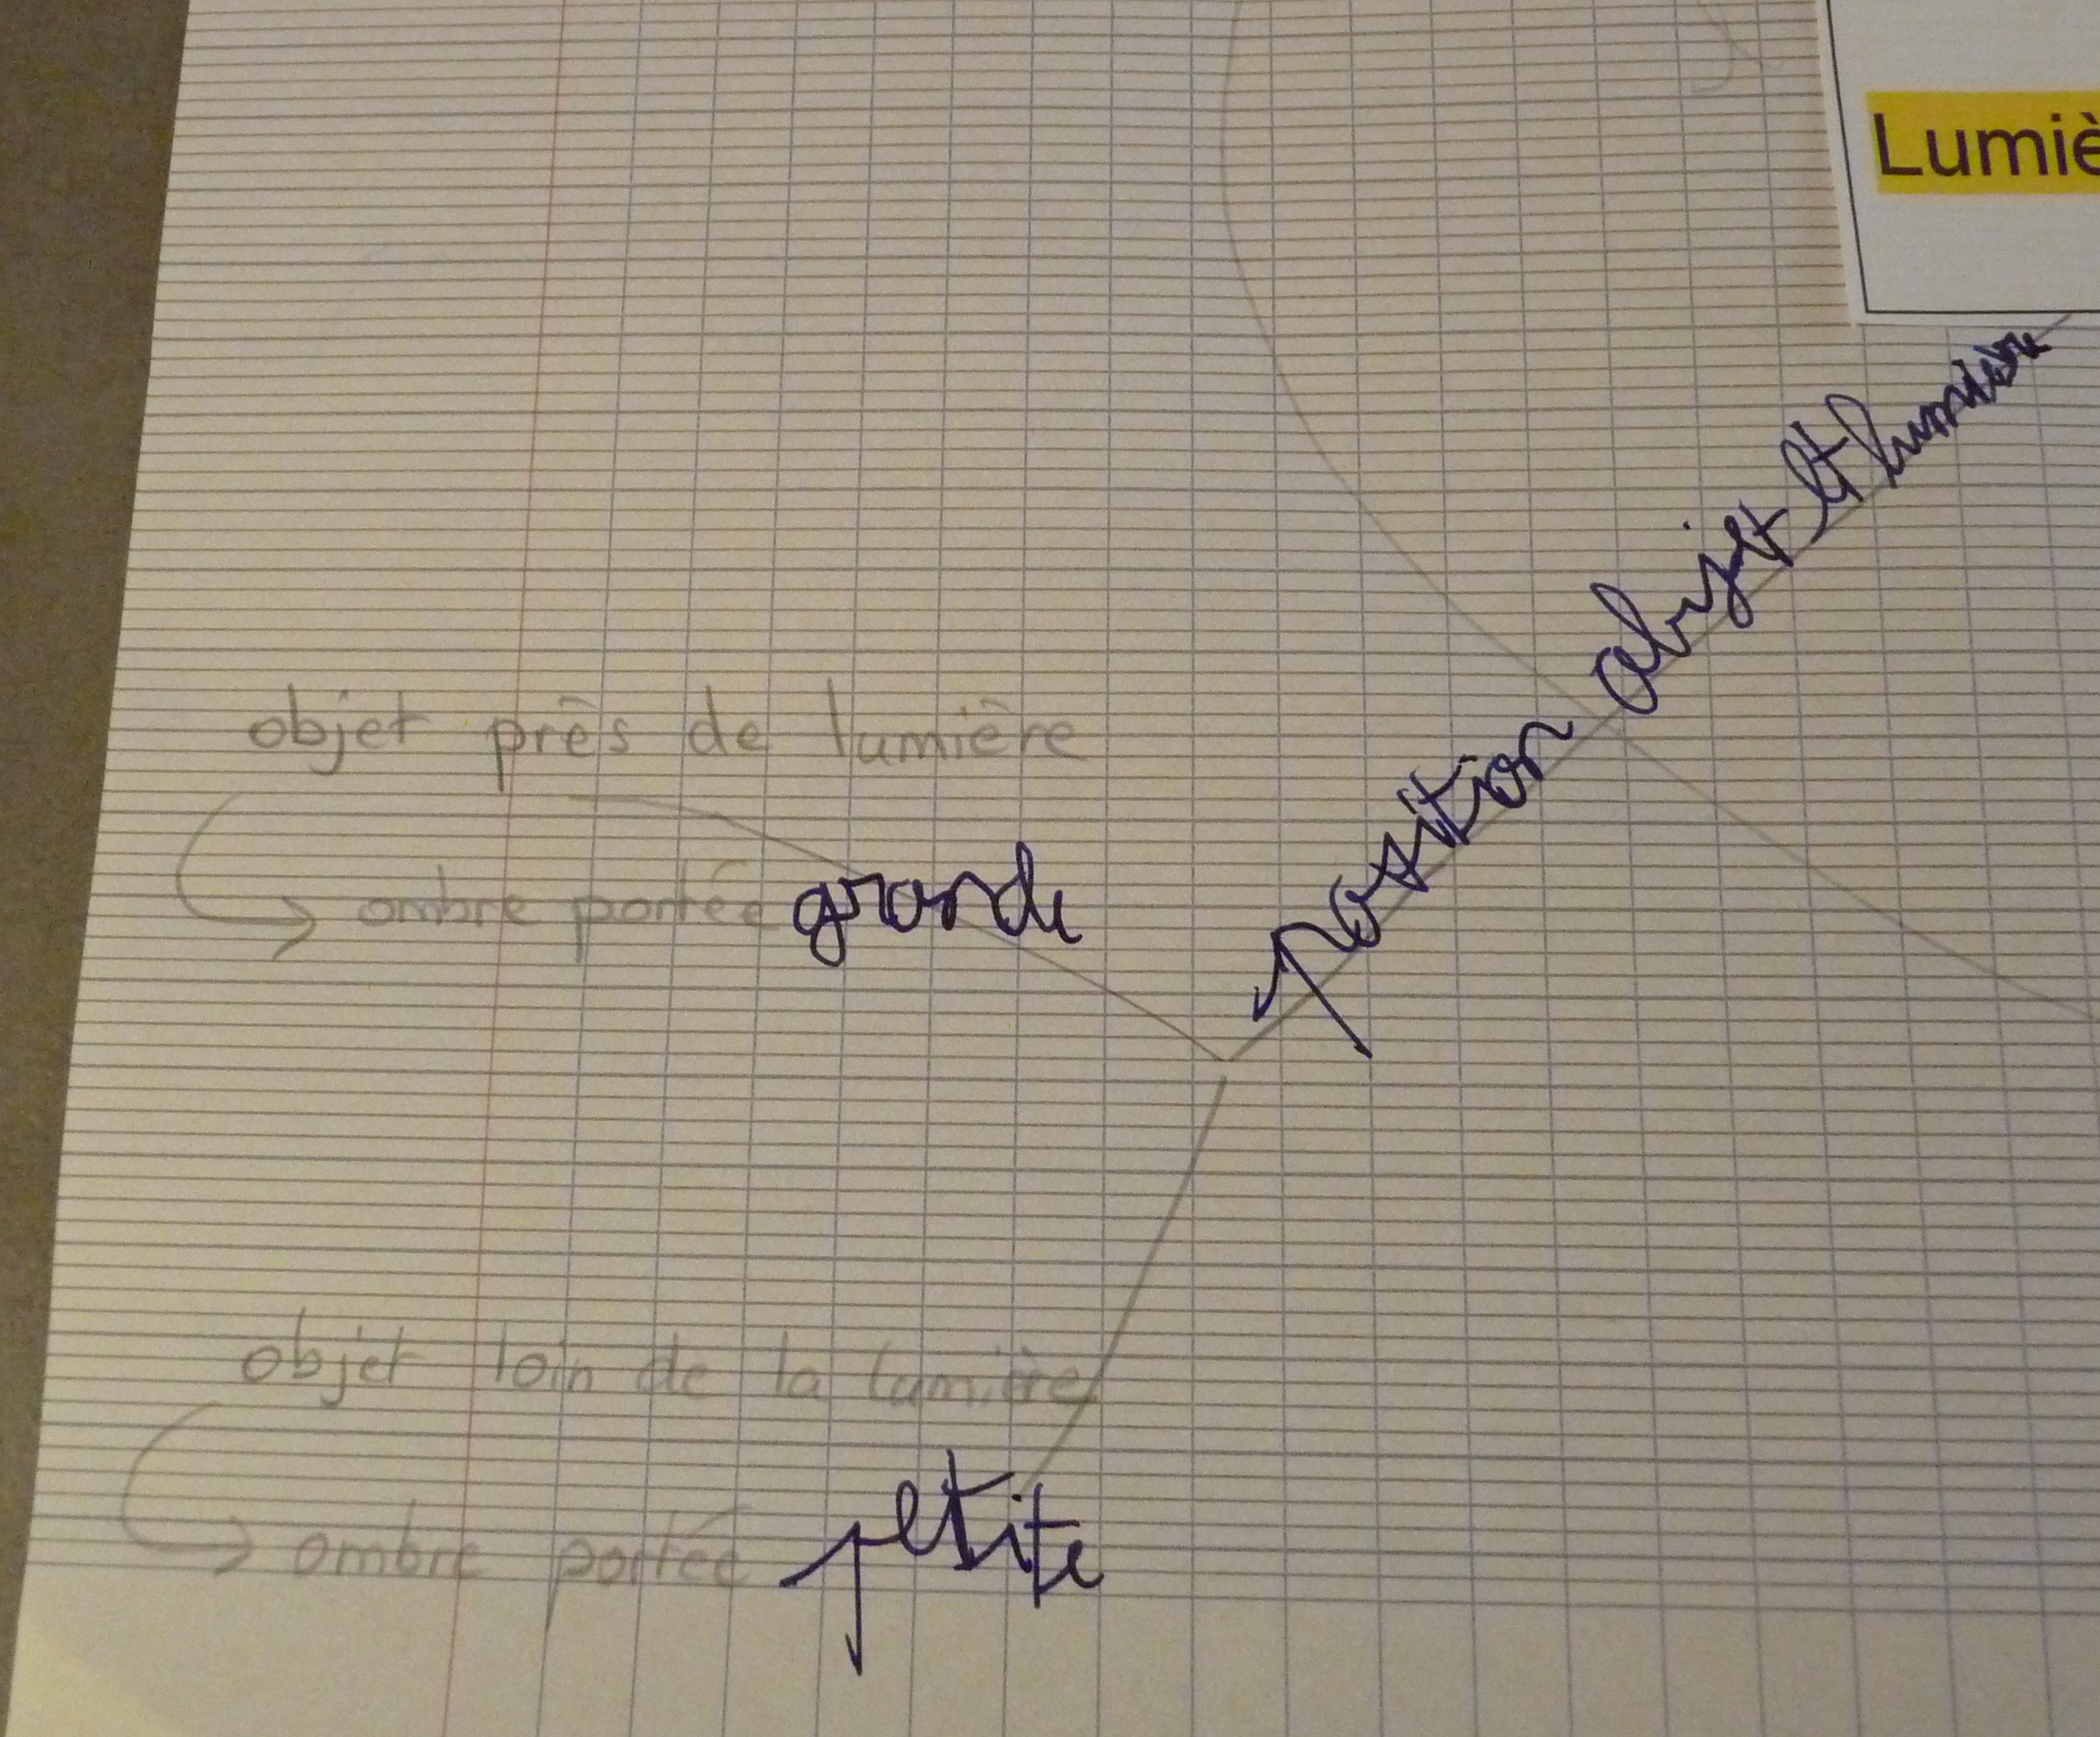 Lumiè
position objet et lumière
objet près de lumière
ombre portée grande
objet loin de la lumière
ombre portée petite